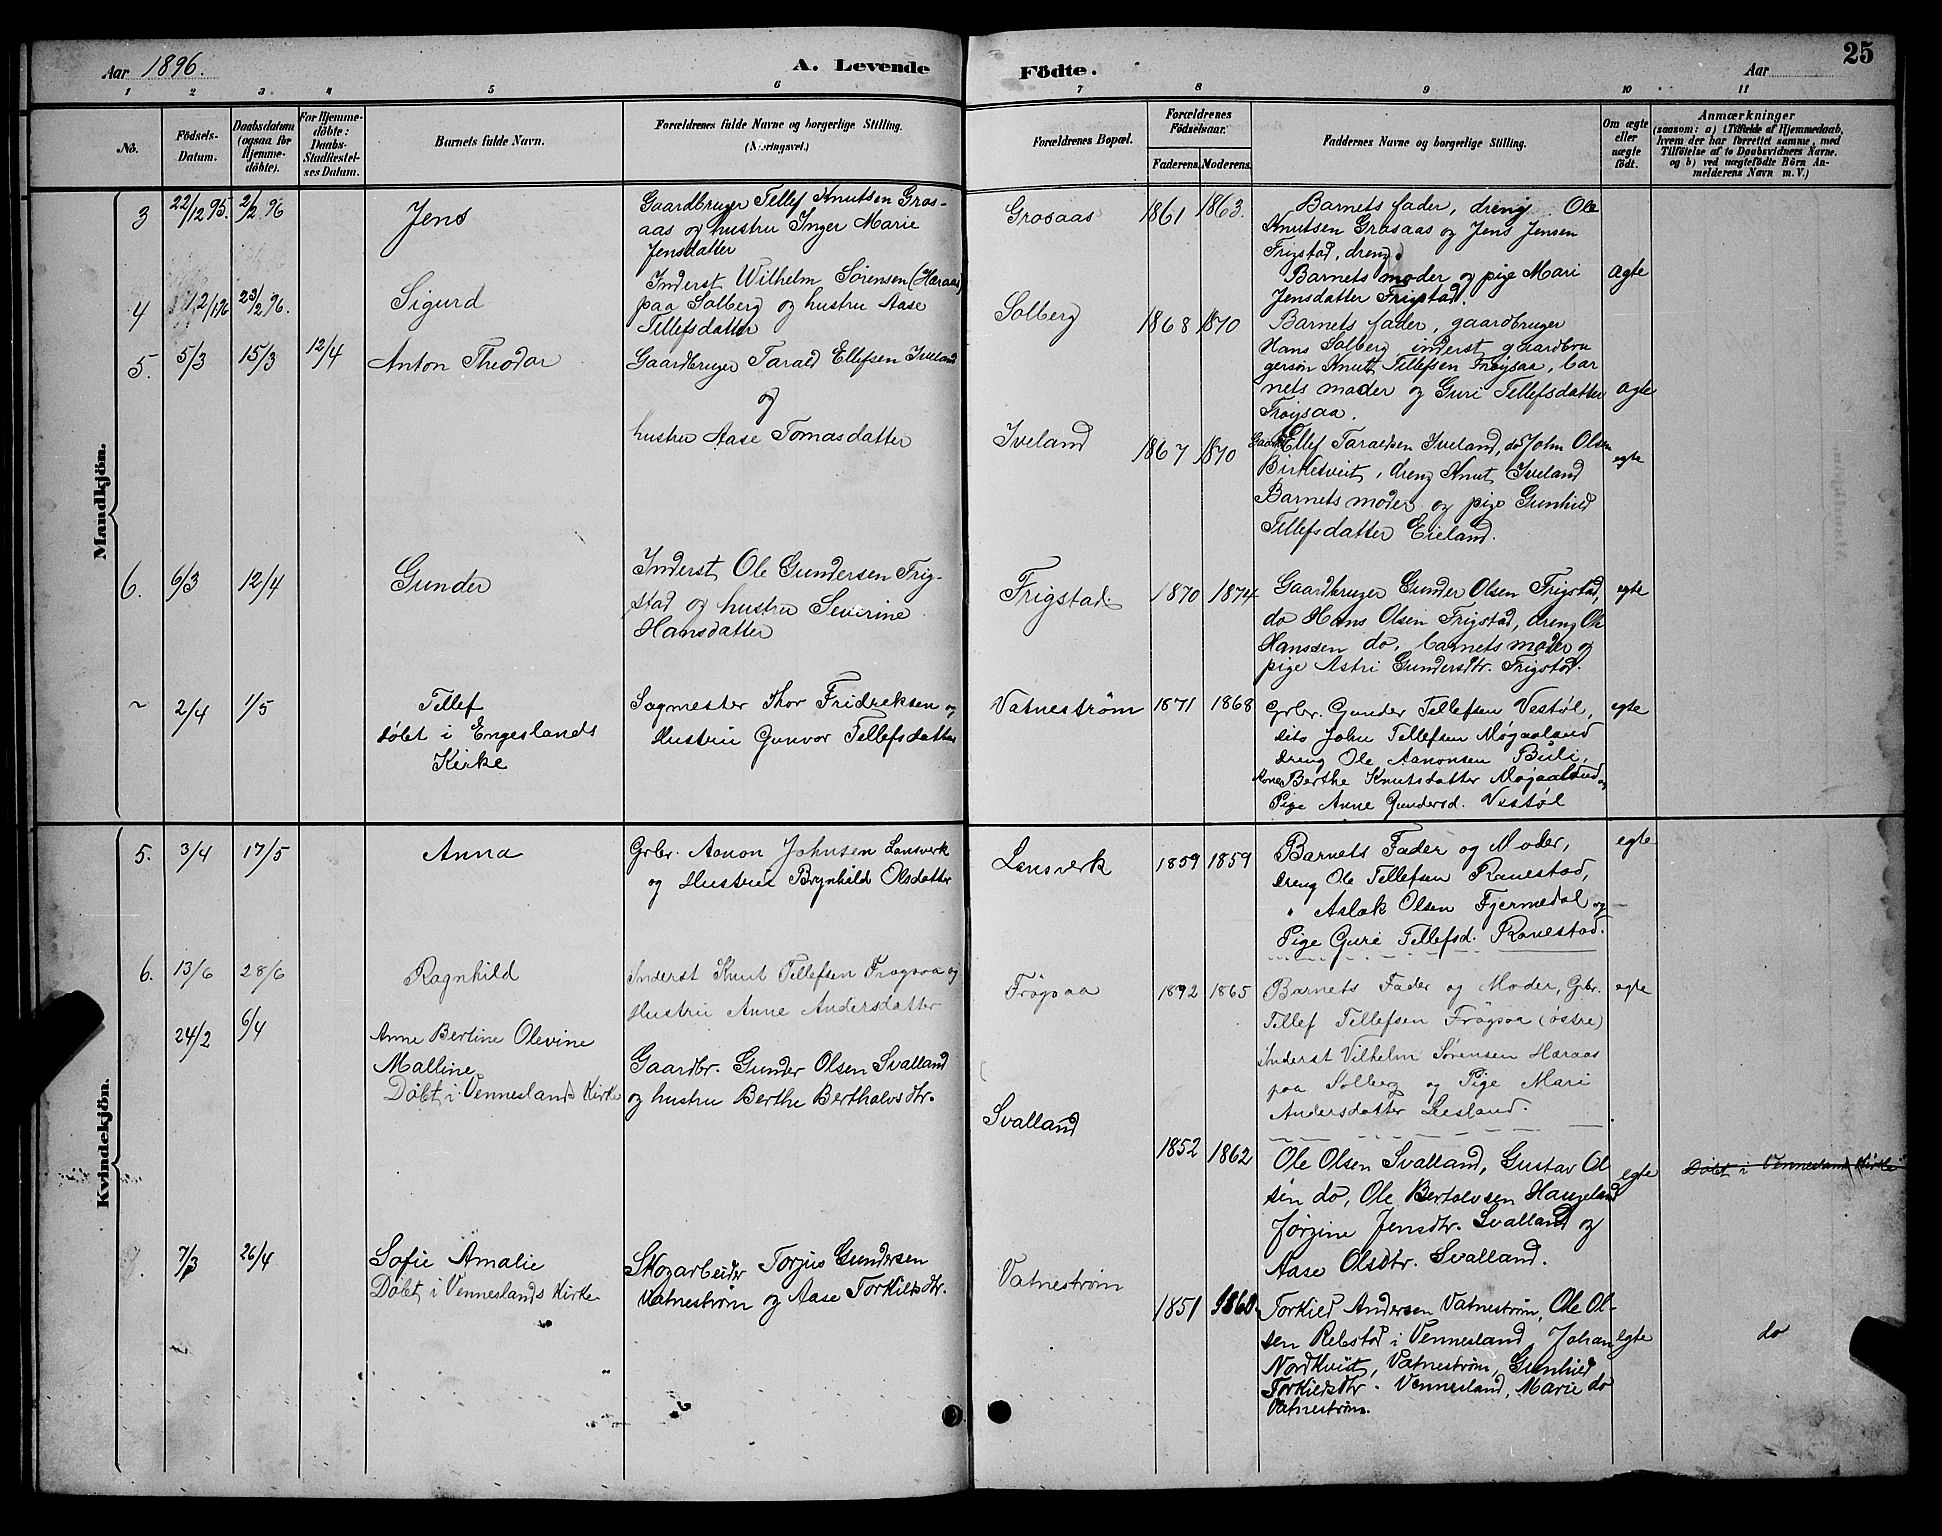 Aar 1896.
A. Levende
Födte.
Aar
25
1 2 3 4 5 6 7 8 9 10 11
No.
Födsels-
Datum.
Daabsdatum
(ogsaa for
Hjemme-
döbte).
For Hjemme-
döbte:
Daabs-
Stadfæstel-
ses Datum.
Barnets fulde Navn.
Forældrenes fulde Navne og borgerlige Stilling.
(Næringsvei.)
Forældrenes Bopæl.
Forældrenes
Födselsaar.
Faderens. Moderens.
Faddernes Navne og borgerlige Stilling.
Om ægte
eller
uægte
födt.
Anmærkninger
(saasom: a) i Tilfælde af Hjemmedaab,
hvem der har forrettet samme, med
Tilföielse af to Daabsvidners Navne.
og b) ved uægtefödte Börn An-
melderens Navn m. V.)
Mandkjön.
3 22/12 95. 2/2 96
Jens
Gaardbruger Tellef Knutsen Gros-
aas og hustru Inger Marie
Jensdatter
Grosaas
1861 1863.
Barnets fader, dreng Ole
Knutsen Grosaas og Jens Jensen
Frigstad, dreng.
Barnets moder og pige Mari
Jensdatter Frigstad.
Ægte
4 12/1 96 23/2 96.
Sigurd
Inderst Wilhelm Sørensen (Hæraas)
paa Solberg og hustru Aase
Tellefsdatter
Solberg
1868 1870
Barnets fader, gaardbruger
Hans Solberg inderst gaardbru
gersøn Knut Tellefsen Frøysaa, bar
nets moder og Guri Tellefsdatter
Frøysaa.
Ægte
5. 5/3 15/3 12/4
Anton Theodor
Gaardbruger Tarald Ellefsen Iveland
og
hustru Aase Tomasdatter
Iveland
1867 1870
Gaardbr Ellef Taraldsen Iveland, do John Olsen
Birketveit, dreng Knut Iveland
Barnets moder og pige Gunhild
Tellefsdatter Eieland.
egte
6. 6/3 12/4
Gunder
Inderst Ole Gundersen Frig-
stad og hustru Severine
Hansdatter
Frigstad.
1870 1874
Gaardbruger Gunder Olsen Frigstad,
do Hans Olsen Frigstad, dreng Ole
Hanssen do, barnets moder og
pige Astri Gundersdtr. Frigstad.
egte
~ 2/4 1/5
Tellef
døbt i Engeslands
Kirke
Sagmester Thor Fridreksen og
Hustru Gunvor Tellefsdatter
Vatnestrøm
1871 1868
Grbr. Gunder Tellefsen Vestøl,
dito John Tellefsen Møgaaland
dreng Ole Aanonsen Buli,
Kone Berthe Knutsdatter Møgaaland og
Pige Anne Gundersd. Vestøl
egte
Kvindekjön.
5. 3/4 17/5
Anna
Grbr. Aanon Johnsen Lansverk
og Hustru Brynhild Olsdatter
Lansverk
1859 1859
Barnets Fader og Moder,
dreng Ole Tellefsen Ranestad,
" Aslak Olsen Fjermedal og
Pige Guri Tellefsd. Ranestad.
egte
6. 13/6 28/6
Ragnhild
Inderst Knut Tellefsen Frøgsaa og
Hustru Anne Andersdatter
Frøgsaa
1892 1865
Barnets Fader og Moder, Grbr.
Tellef Tellefsen Frøgsaa (østre)
Inderst Vilhelm Sørensen Hæraas
paa Solberg og Pige Mari
Andersdatter Liesland.
egte
24/2 6/4
Anne Bertine Olevine
Malline
Døbt i Venneslands Kirke
Gaardbr. Gunder Olsen Svalland
og hustru Berthe Berthalvsdtr.
Svalland
1852 1862
Ole Olsen Svalland, Gustav Ol
sen do, Ole Bertolvsen Haugeland
Jørgine Jensdtr. Svalland og
Aase Olsdtr. Svalland.
egte
Døbt i Vennesland Kirke
7/3 26/4
Sofie Amalie
Døbt i Venneslands Kirke
Skogarbeider Torjus Gundersen
Vatnestrøm og Aase Torkildsdtr.
Vatnestrøm
1851 1860
Torkild Andersen Vatnestrøm, Ole Ol-
sen Rebstad i Vennesland, Johan
Nordkvist, Vatnestrøm, Gunhild
Torkildsdtr. Vennesland, Marie do
Vatnestrøm.
egte
do